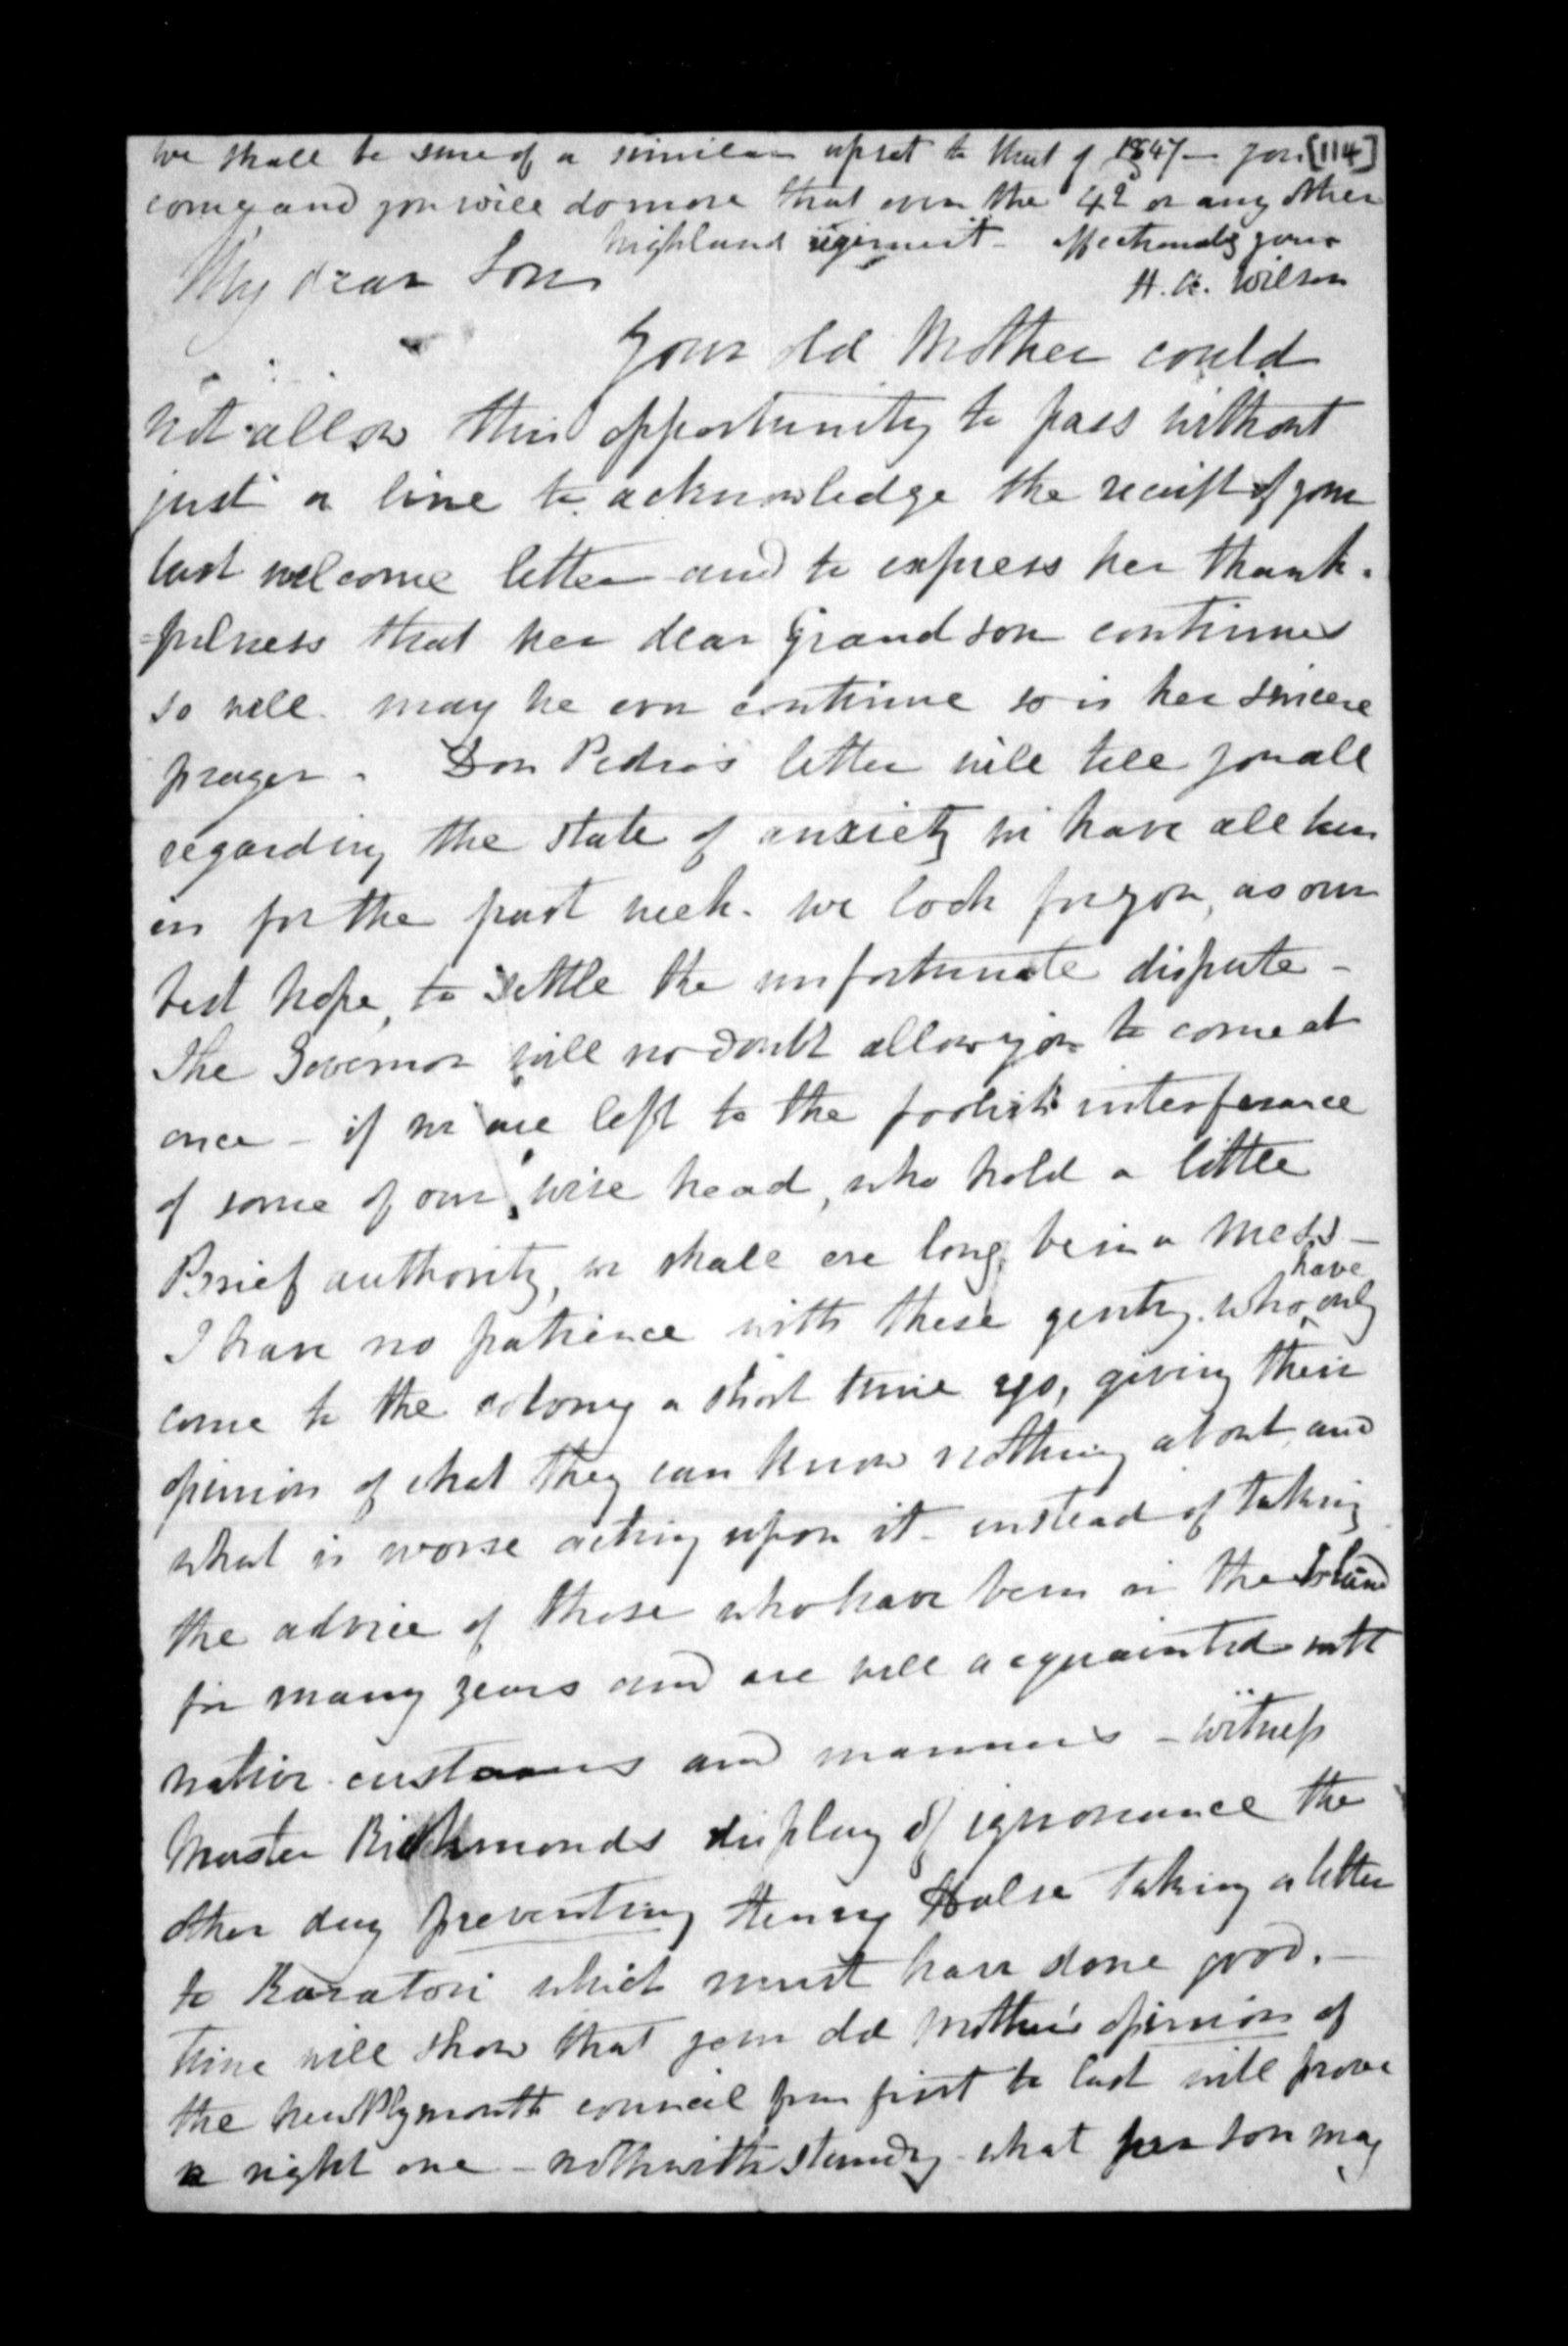 we shall be sure of a similar upset to that of 1847 - you [114]
come and you will do more that even the 42 or any other
highland regiment - affectionately yours
H. A. Wilson
My dear Son
Your old Mother could
not allow this opportunity to pass without
just a line to acknowledge the receipt of your
last welcome letter and to express her thank-
=fulness that her dear Grandson continues
so well may he ever continue so is her sincere
prayer. Don Pedro's letter will tell you all
regarding the state of anxiety we have all been
in for the past week. we look for you, as our
best hope, to settle the unfortunate dispute -
The Governor will no doubt allow you to come at
once - if we are left to the foolish interference
of some of our wise head, who hold a little
Brief authority, we shall ere long be in a mess -
I have no patience with these gentry. who have only
come to the colony a short time ago, giving their
opinion of what they can know nothing about and
what is worse acting upon it - instead of taking
the advice of those who have been in the Island
for many years and are well acquainted with
native customs and manners - witness
Master Richmonds display of ignorance the
other day preventing Henry Halse taking a letter
to Karatori which must have done good. -
time will show that your old mother's opinion of
the New Plymouth council from first to last will prove
a right one - nothwithstanding what her son may